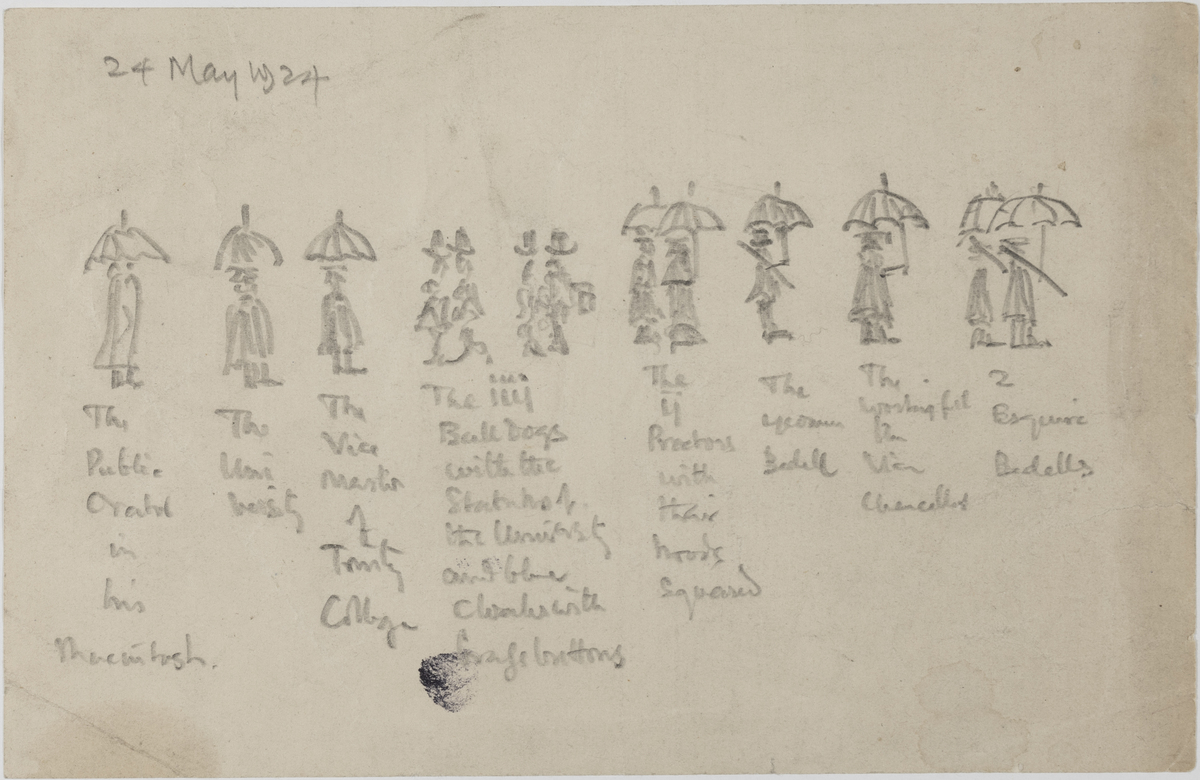 24 May 1924
The
Public
Orator
in
his
Macintosh.
The
Uni
versity
The
Vice
Master
of
Trinity
College
The iiij
Bull Dogs
with the
Statutes of
the University
and blue
Cloaks with
brass buttons
The
ij
Proctors
with
their
hoods
Squared
The
yeoman
Bedell
The
worshipful
the
Vice
Chancellor
2
Esquire
Bedells